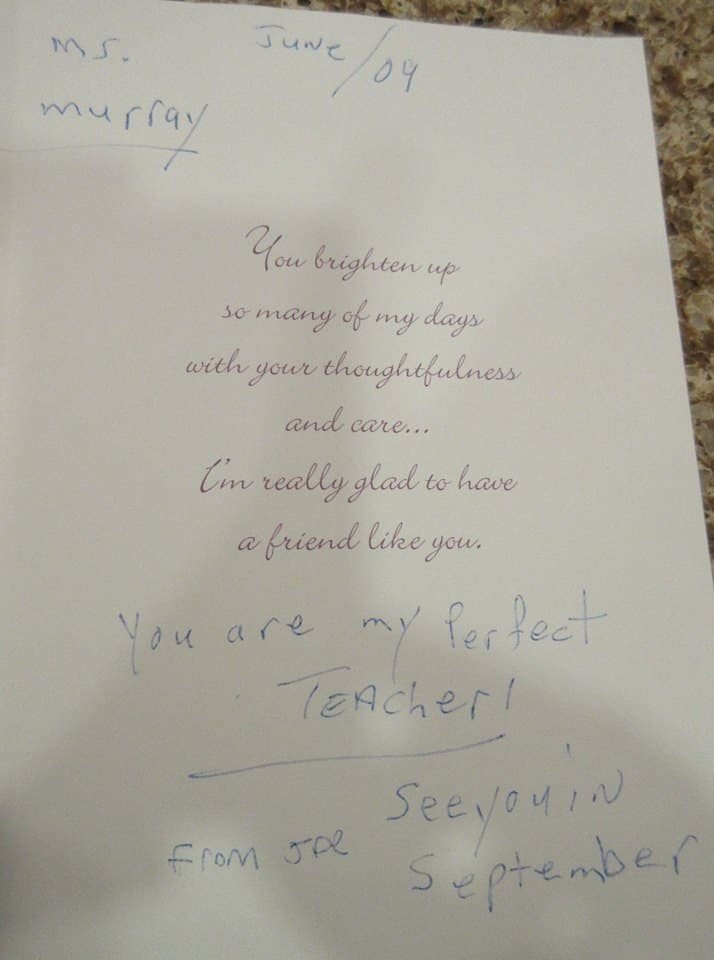 Ms. June/09
Murray
You brighten up
so many of my days
with your thoughtfulness
and care...
I'm really glad to have
a friend like you.
You are my Perfect
TEAcher!
See you iN
From Joe September